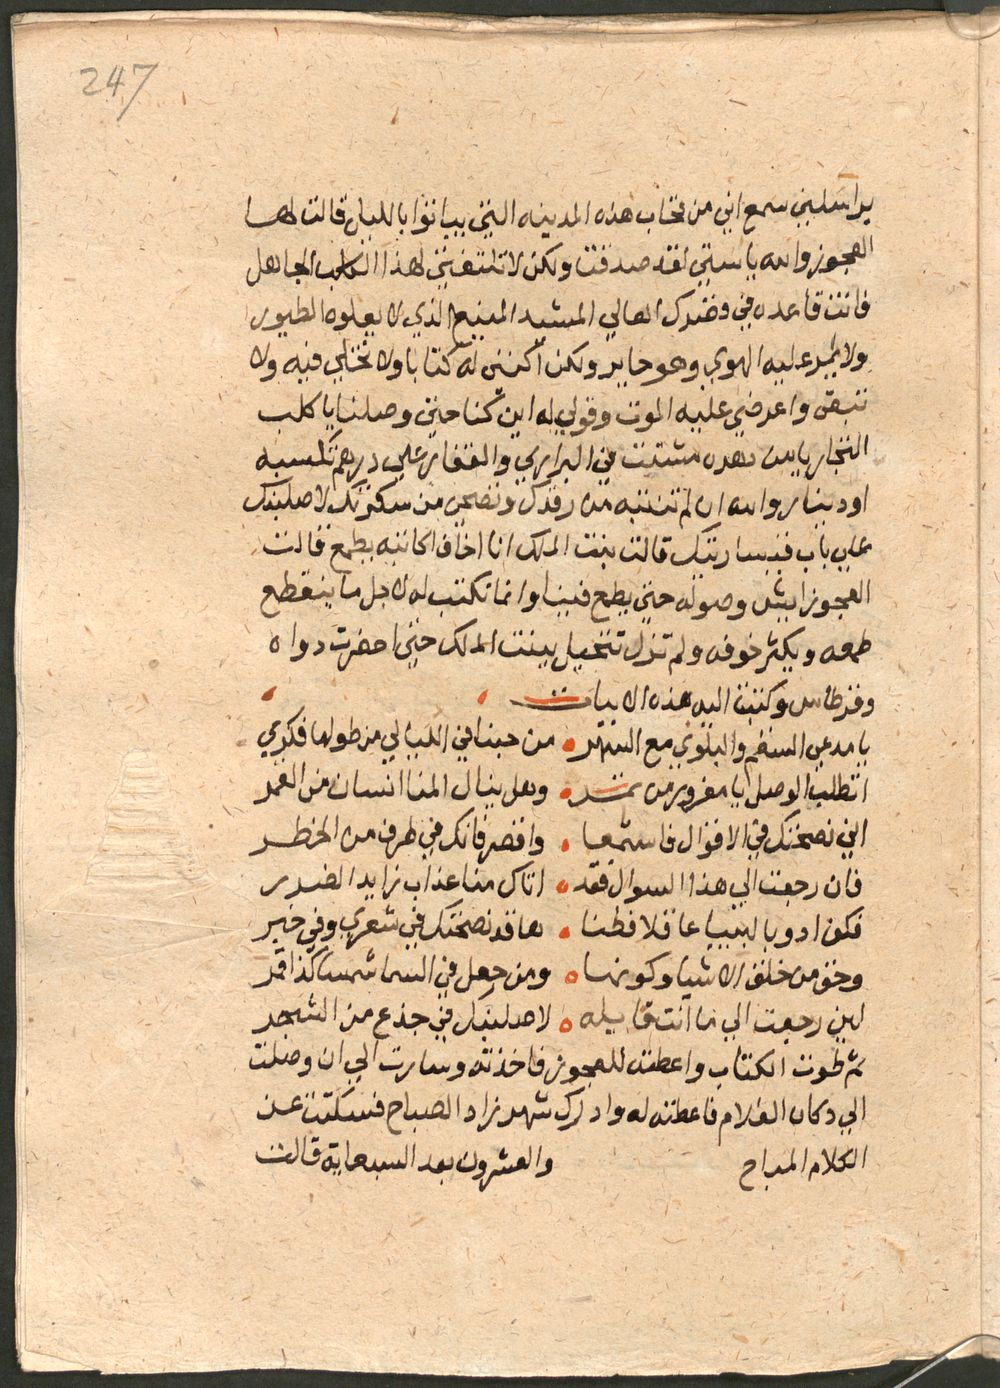 247
يراسليني سمع اني من قحاب هذه المدينه التي يباتوا بالليل قالت لها
العجوز والله ياستي لقد صدقتي ولكن لا تلتفتي لهذا الكلب الجاهل
فانتي قاعده في قصرك العالي المشيد المنيع الذي لا يعلوه الطيور
ولا يمر عليه الهوي وهو حاير ولكن اكتبي له كتابا ولا تختلي فيه ولا
تتبقي واعرضي عليه الموت وقولي له اين كنا حتي وصلنا يا كلب
التجار يا من دهره مشتت في البراري والقفار علي درهم تكسبه
او دينار والله ان لم تنتبه من رقدك وتصحي من سكرتك لا صلبنك
علي باب قيساريتك قالت بنت الملك انا اخاف اكاتبه يطمع قالت
العجوز ايش وصوله حتي يطمع فينا وانما نكتب له لاجل ما ينقطع
طمعه ويكثر خوفه ولم تزل تتحيل ببنت الملك حتي احضرت دواه
وقرطاس وكتبت اليه هذه الابيات
يا مدعي السقم والبلوي مع السهر من حبنا في الليالي من طولها فكري
اتطلب الوصل يا مغرور من قمر وهل ينال المنا انسان من القمر
اني نصحتك في الاقوال فاستمعا واقصر فانك في طرف من الخطر
فان رجعت الي هذا السوال فقد اتاك منا عذاب زايد الضرر
فكون ادوبا لبيبا عاقلا فطنا ها قد نصحتك في شعري وفي خبر
وحق من خلق الاشيا وكونها ومن جعل في السما شمسا كذا قمر
لين رجعت الي ما انت قايله لا صلبنك في جذع من الشجر
ثم طوت الكتاب واعطته للعجوز فاخذته وسارت الي ان وصلت
الي دكان الغلام فاعطته له وادرك شهرزاد الصباح فسكتت عن
الكلام المباح والعشرون بعد السبعماية قالت